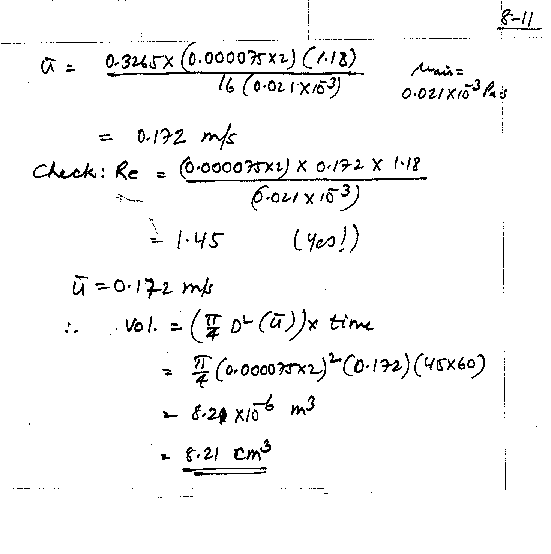 8-11
ū = 0.3265 × (0.000075×2) (1.18) / 16 (0.021×10⁻³)
μair = 0.021×10⁻³ Pa·s
= 0.172 m/s
Check: Re = (0.000075×2) × 0.172 × 1.18 / (0.021×10⁻³)
= 1.45 (Yes!)
ū = 0.172 m/s
∴ Vol. = (π/4 D² (ū)) × time
= π/4 (0.000075×2)² (0.172) (45×60)
= 8.21 ×10⁻⁶ m³
= 8.21 cm³